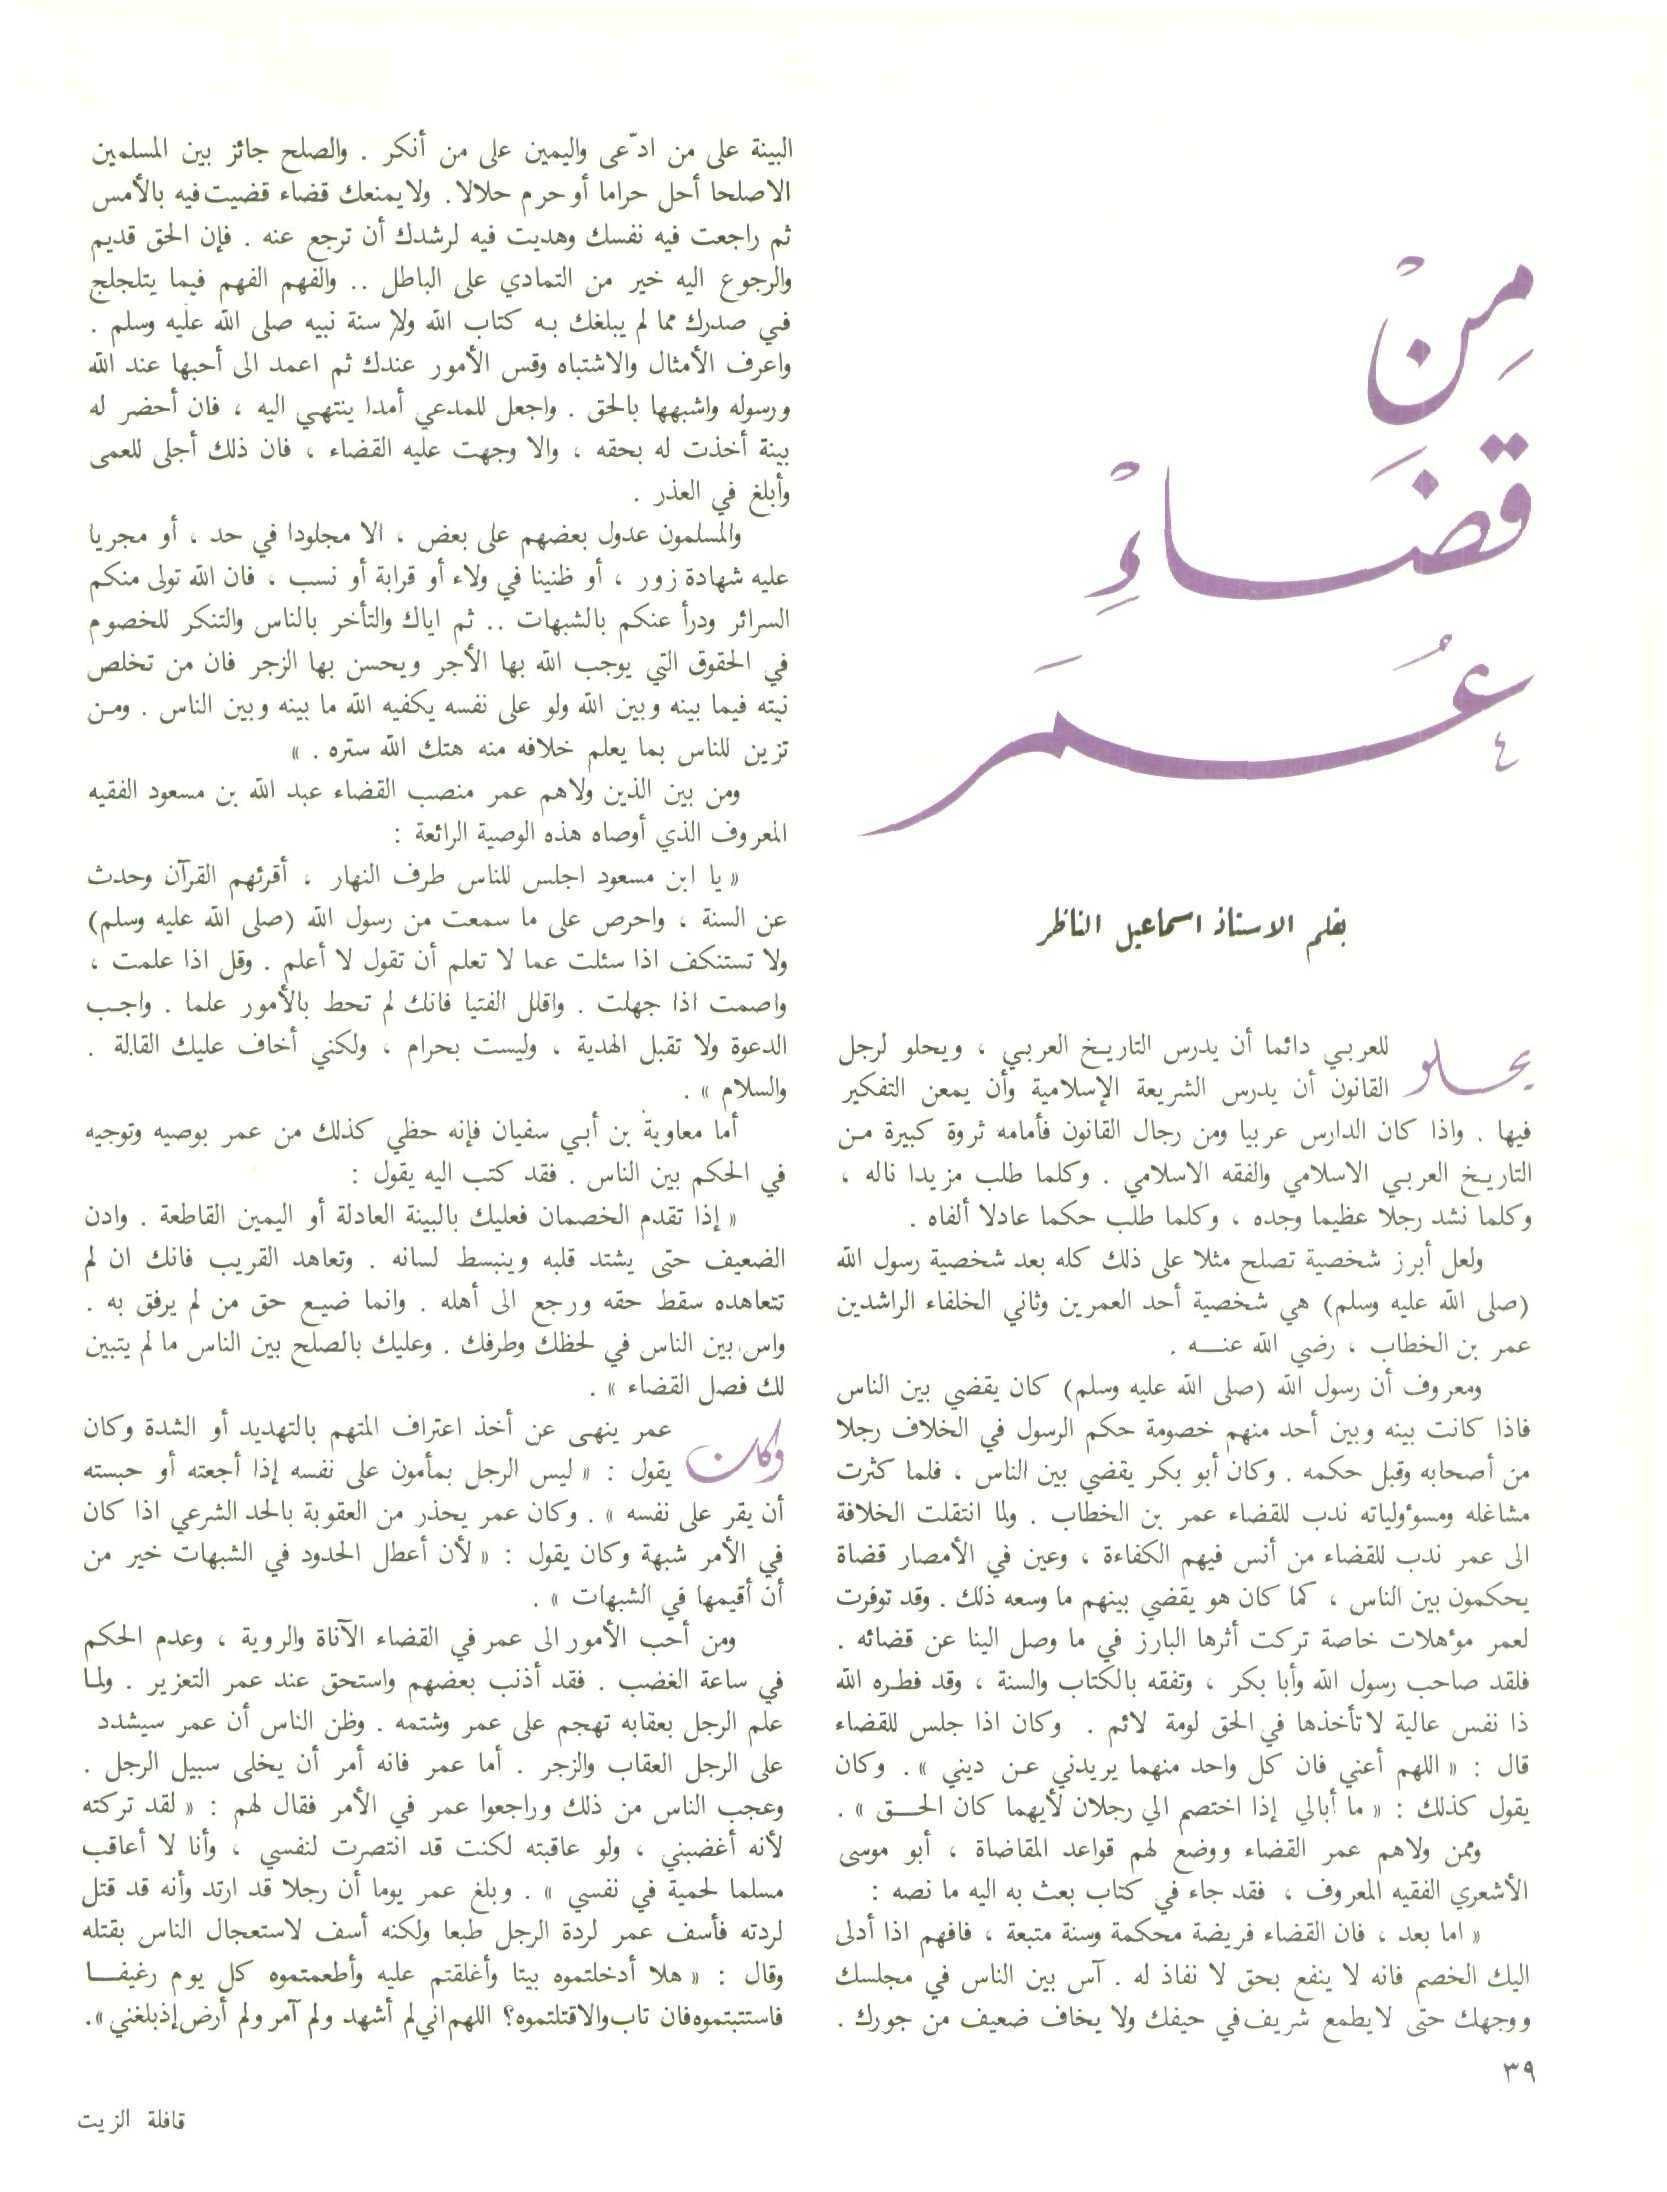 مِنْ
قضَاءِ
عُمَر
بقلم الاستاذ اسماعيل الناظر
يحلو للعربي دائما أن يدرس التاريخ العربي ، ويحلو لرجل
القانون أن يدرس الشريعة الإسلامية وأن يمعن التفكير
فيها . واذا كان الدارس عربيا ومن رجال القانون فأمامه ثروة كبيرة من
التاريخ العربي الاسلامي والفقه الاسلامي . وكلما طلب مزيدا ناله ،
وكلما نشد رجلا عظيما وجده ، وكلما طلب حكما عادلا ألفاه .
ولعل أبرز شخصية تصلح مثلا على ذلك كله بعد شخصية رسول الله
(صلى الله عليه وسلم) هي شخصية أحد العمرين وثاني الخلفاء الراشدين
عمر بن الخطاب ، رضي الله عنه .
ومعروف أن رسول الله (صلى الله عليه وسلم) كان يقضي بين الناس
فاذا كانت بينه وبين أحد منهم خصومة حكم الرسول في الخلاف رجلا
من أصحابه وقبل حكمه . وكان أبو بكر يقضي بين الناس ، فلما كثرت
مشاغله ومسؤولياته ندب للقضاء عمر بن الخطاب . ولما انتقلت الخلافة
الى عمر ندب للقضاء من أنس فيهم الكفاءة ، وعين في الأمصار قضاة
يحكمون بين الناس ، كما كان هو يقضي بينهم ما وسعه ذلك . وقد توفرت
لعمر مؤهلات خاصة تركت أثرها البارز في ما وصل الينا عن قضائه .
فلقد صاحب رسول الله وأبا بكر ، وتفقه بالكتاب والسنة ، وقد فطره الله
ذا نفس عالية لا تأخذها في الحق لومة لائم . وكان اذا جلس للقضاء
قال : « اللهم أعني فان كل واحد منهما يريدني عن ديني » . وكان
يقول كذلك : « ما أبالي إذا اختصم الي رجلان لأيهما كان الحق » .
وممن ولاهم عمر القضاء ووضع لهم قواعد المقاضاة ، أبو موسى
الأشعري الفقيه المعروف ، فقد جاء في كتاب بعث به اليه ما نصه :
« اما بعد ، فان القضاء فريضة محكمة وسنة متبعة ، فافهم اذا أدلى
اليك الخصم فانه لا ينفع بحق لا نفاذ له . آس بين الناس في مجلسك
ووجهك حتى لا يطمع شريف في حيفك ولا يخاف ضعيف من جورك .
البينة على من ادّعى واليمين على من أنكر . والصلح جائز بين المسلمين
الا صلحا أحل حراما أو حرم حلالا . ولا يمنعك قضاء قضيت فيه بالأمس
ثم راجعت فيه نفسك وهديت فيه لرشدك أن ترجع عنه . فإن الحق قديم
والرجوع اليه خير من التمادي على الباطل .. والفهم الفهم فيما يتلجلج
في صدرك مما لم يبلغك به كتاب الله ولا سنة نبيه صلى الله عليه وسلم .
واعرف الأمثال والاشتباه وقس الأمور عندك ثم اعمد الى أحبها عند الله
ورسوله واشبهها بالحق . واجعل للمدعي أمدا ينتهي اليه ، فان أحضر له
بينة أخذت له بحقه ، والا وجهت عليه القضاء ، فان ذلك أجلى للعمى
وأبلغ في العذر .
والمسلمون عدول بعضهم على بعض ، الا مجلودا في حد ، أو مجريا
عليه شهادة زور ، أو ظنينا في ولاء أو قرابة أو نسب ، فان الله تولى منكم
السرائر ودرأ عنكم بالشبهات .. ثم اياك والتأخر بالناس والتنكر للخصوم
في الحقوق التي يوجب الله بها الأجر ويحسن بها الزجر فان من تخلص
نيته فيما بينه وبين الله ولو على نفسه يكفيه الله ما بينه وبين الناس . ومن
تزين للناس بما يعلم خلافه منه هتك الله ستره . »
ومن بين الذين ولاهم عمر منصب القضاء عبد الله بن مسعود الفقيه
المعروف الذي أوصاه هذه الوصية الرائعة :
« يا ابن مسعود اجلس للناس طرف النهار ، أقرئهم القرآن وحدث
عن السنة ، واحرص على ما سمعت من رسول الله (صلى الله عليه وسلم)
ولا تستنكف اذا سئلت عما لا تعلم أن تقول لا أعلم . وقل اذا علمت ،
واصمت اذا جهلت . واقلل الفتيا فانك لم تحط بالأمور علما . واجب
الدعوة ولا تقبل الهدية ، وليست بحرام ، ولكني أخاف عليك القالة .
والسلام » .
أما معاوية بن أبي سفيان فإنه حظي كذلك من عمر بوصيه وتوجيه
في الحكم بين الناس . فقد كتب اليه يقول :
« إذا تقدم الخصمان فعليك بالبينة العادلة أو اليمين القاطعة . وادن
الضعيف حتى يشتد قلبه وينبسط لسانه . وتعاهد القريب فانك ان لم
تتعاهده سقط حقه ورجع الى أهله . وانما ضيع حق من لم يرفق به .
واس بين الناس في لحظك وطرفك . وعليك بالصلح بين الناس ما لم يتبين
لك فصل القضاء » .
وكان عمر ينهى عن أخذ اعتراف المتهم بالتهديد أو الشدة وكان
يقول : « ليس الرجل بمأمون على نفسه إذا أجعته أو حبسته
أن يقر على نفسه » . وكان عمر يحذر من العقوبة بالحد الشرعي اذا كان
في الأمر شبهة وكان يقول : « لأن أعطل الحدود في الشبهات خير من
أن أقيمها في الشبهات » .
ومن أحب الأمور الى عمر في القضاء الآناة والروية ، وعدم الحكم
في ساعة الغضب . فقد أذنب بعضهم واستحق عند عمر التعزير . ولما
علم الرجل بعقابه تهجم على عمر وشتمه . وظن الناس أن عمر سيشدد
على الرجل العقاب والزجر . أما عمر فانه أمر أن يخلى سبيل الرجل .
وعجب الناس من ذلك وراجعوا عمر في الأمر فقال لهم : « لقد تركته
لأنه أغضبني ، ولو عاقبته لكنت قد انتصرت لنفسي ، وأنا لا أعاقب
مسلما لحمية في نفسي » . وبلغ عمر يوما أن رجلا قد ارتد وأنه قد قتل
لردته فأسف عمر لردة الرجل طبعا ولكنه أسف لاستعجال الناس بقتله
وقال : « هلا أدخلتموه بيتا وأغلقتم عليه وأطعمتموه كل يوم رغيفا
فاستتبتموه فان تاب والا قتلتموه؟ اللهم اني لم أشهد ولم آمر ولم أرض إذ بلغني » .
٣٩
قافلة الزيت